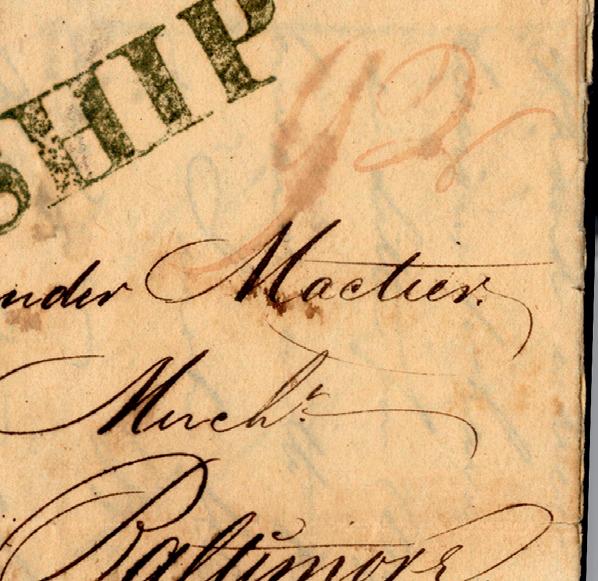 SHIP
92
nder Mactier.
Mercht
Baltimore